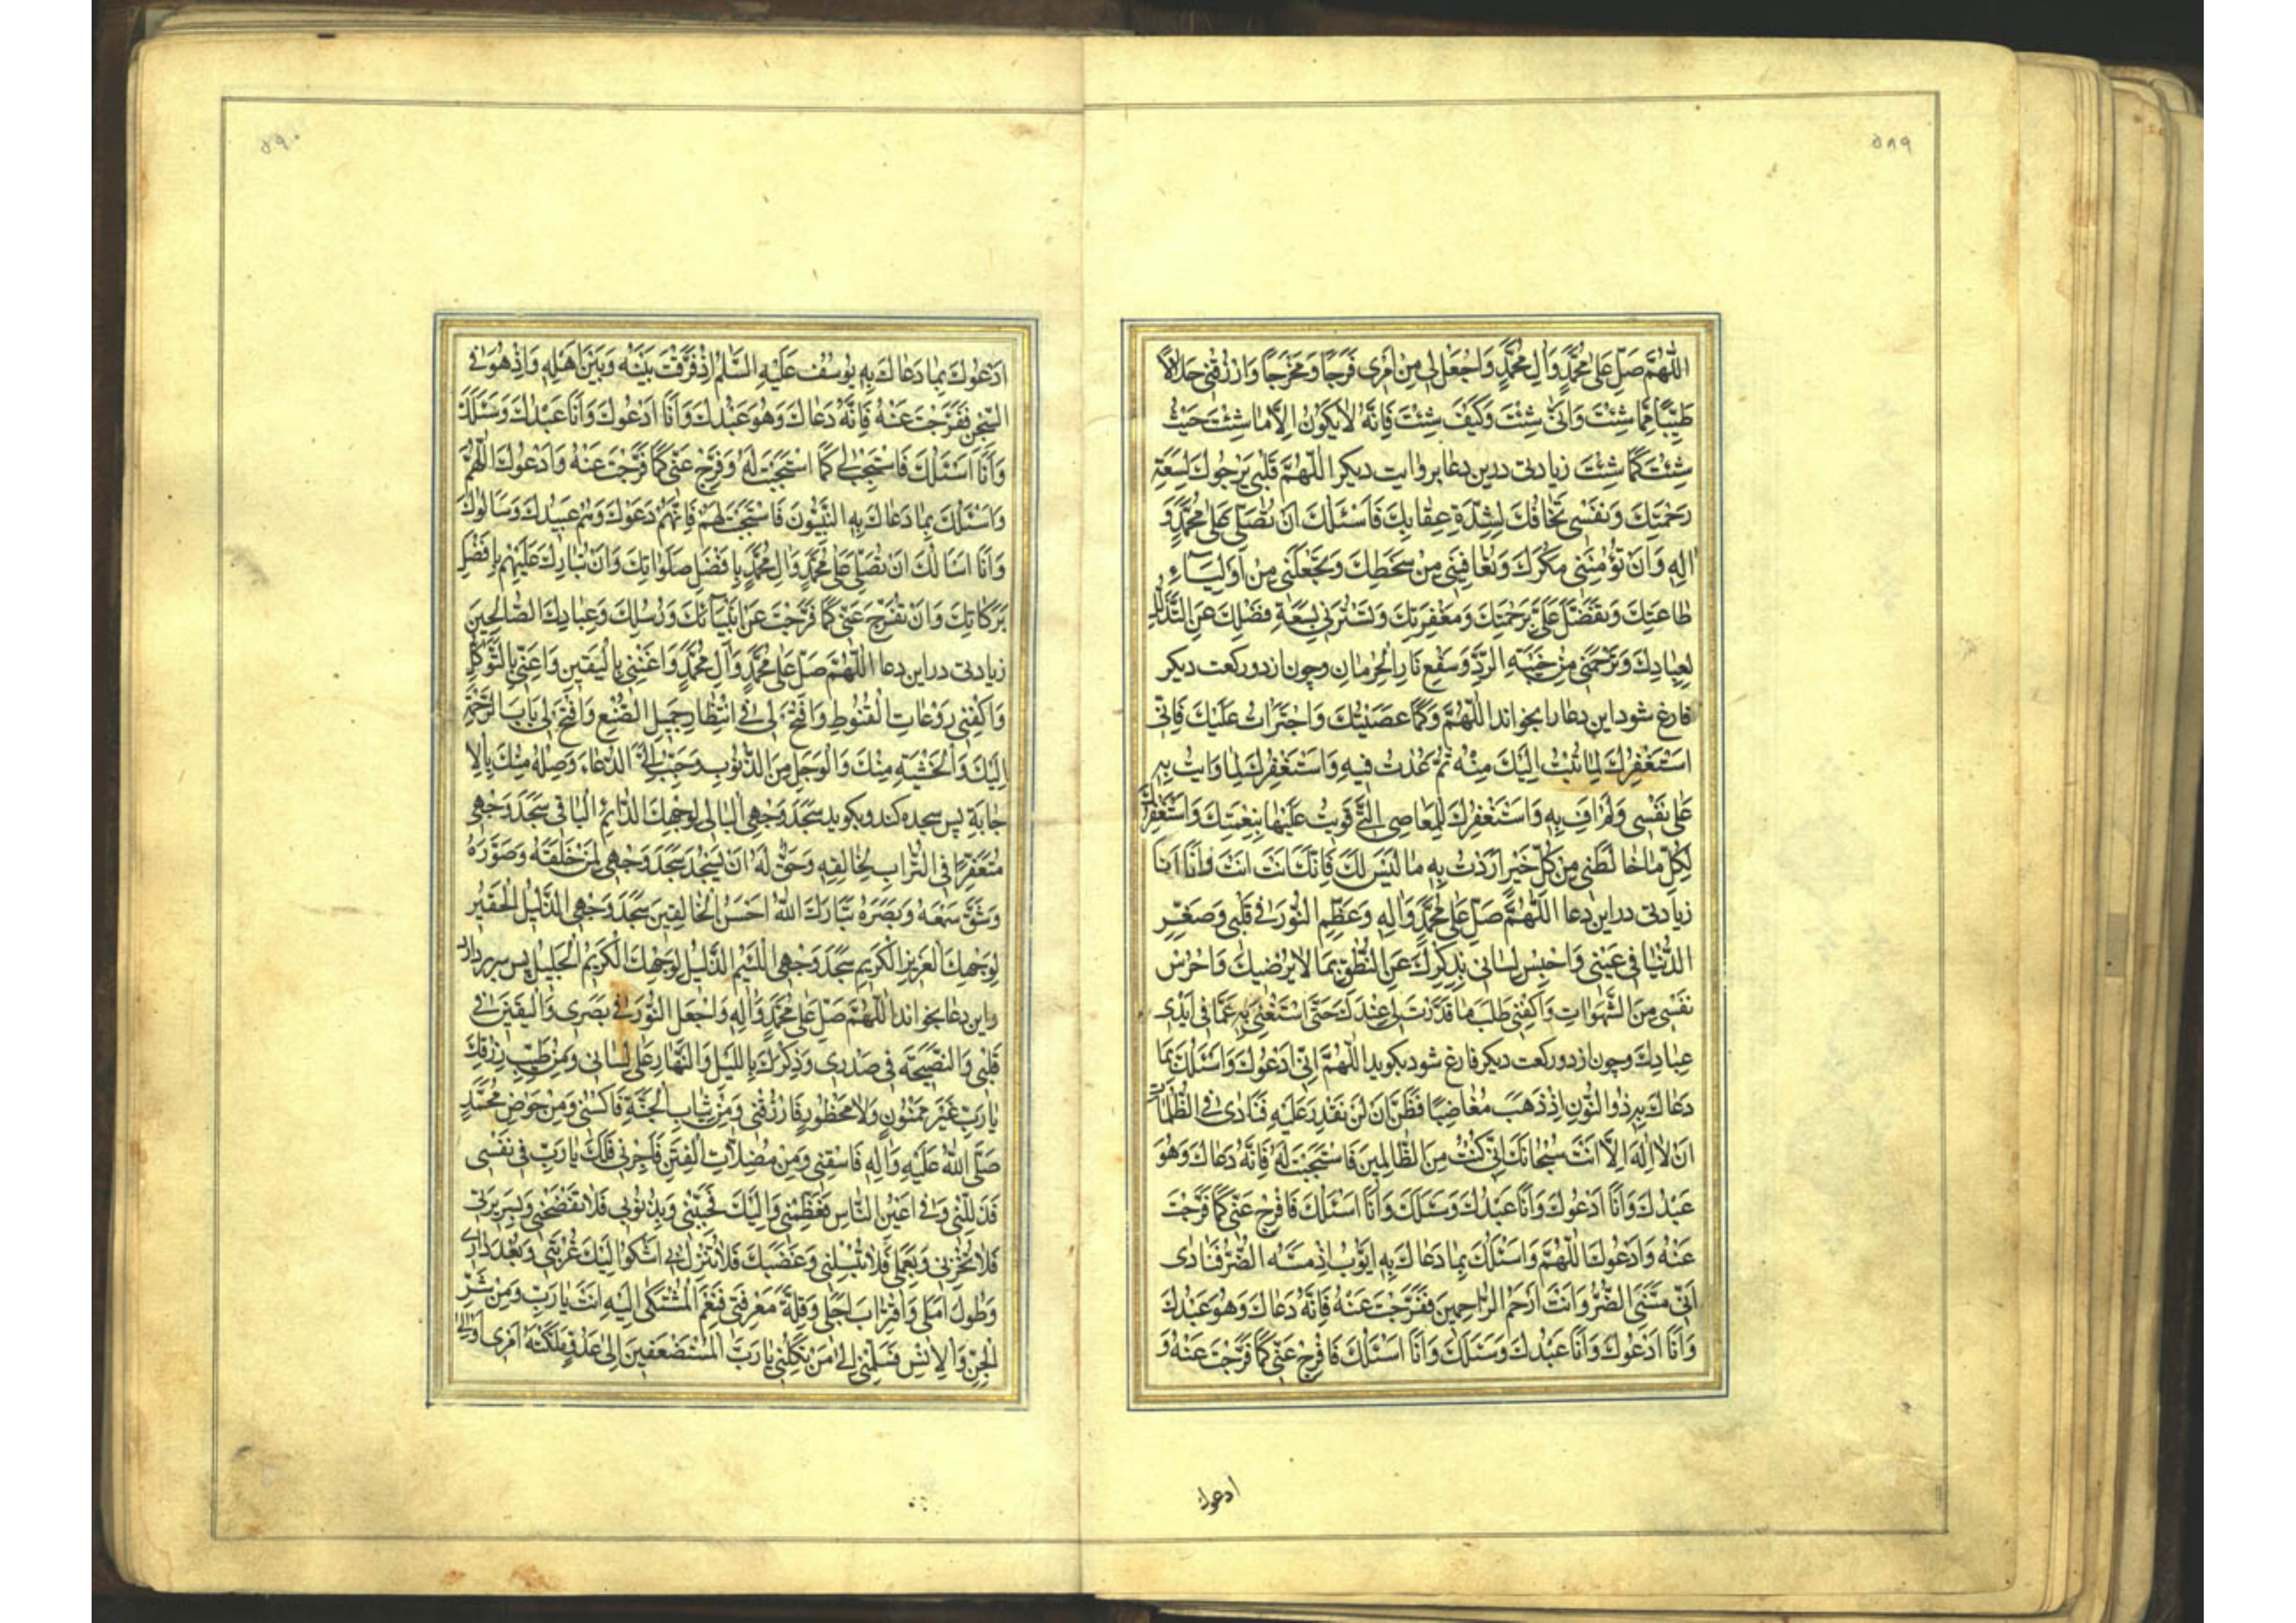 ٥٨٩
اللّٰهُمَّ صَلِّ عَلىٰ مُحَمَّدٍ وَاٰلِ مُحَمَّدٍ وَاجْعَلْ لي مِنْ اَمْري فَرَجًا وَمَخْرَجًا وَارْزُقْنِي حَلالًا
طَيِّبًا مِمَّا شِئْتَ وَاَنّىٰ شِئْتَ وَكَيْفَ شِئْتَ فَاِنَّهُ لايَكُونُ اِلّا مٰا شِئْتَ حَيْثُ
شِئْتَ كَمٰا شِئْتَ زيادتى درين دعا بروايت ديكر اللّٰهُمَّ قَلْبي يَرْجُوكَ لِسَعَةِ
رَحْمَتِكَ وَنَفْسي تَخٰافُكَ لِشِدَّةِ عِقٰابِكَ فَاَسْئَلُكَ اَنْ تُصَلِّيَ عَلىٰ مُحَمَّدٍ وَ
اٰلِهِ وَاَنْ تُؤْمِنَنِي مَكْرَكَ وَتُعٰافِيَنِي مِنْ سَخَطِكَ وَتَجْعَلَنِي مِنْ اَوْلِيٰاءِ
طٰاعَتِكَ وَتَفَضَّلَ عَلَيَّ بِرَحْمَتِكَ وَمَغْفِرَتِكَ وَتَسْتُرَنِي بِسَعَةِ فَضْلِكَ عَنِ التَّذَلُّلِ
لِعِبٰادِكَ وَتَرْحَمَنِي مِنْ خَيْبَةِ الرَّدِّ وَسَفْعِ نٰارِ الْحِرْمٰانِ وچون از دو ركعت ديكر
فارغ شود اين دعا را بخواند اللّٰهُمَّ وَكَمٰا عَصَيْتُكَ وَاجْتَرَاْتُ عَلَيْكَ فَاِنّي
اَسْتَغْفِرُكَ لِمٰا تُبْتُ اِلَيْكَ مِنْهُ ثُمَّ عُدْتُ فيهِ وَاَسْتَغْفِرُكَ لِمٰا وَاَيْتُ بِهِ
عَلىٰ نَفْسي وَلَمْ اَفِ بِهِ وَاَسْتَغْفِرُكَ لِلْمَعٰاصِي الَّتي قَوِيتُ عَلَيْهٰا بِنِعْمَتِكَ وَاَسْتَغْفِرُكَ
لِكُلِّ مٰا خٰالَطَني مِنْ كُلِّ خَيْرٍ اَرَدْتُ بِهِ مٰا لَيْسَ لَكَ فَاِنَّكَ اَنْتَ اَنْتَ وَاَنَا اَنَا
زيادتى دراين دعا اللّٰهُمَّ صَلِّ عَلىٰ مُحَمَّدٍ وَاٰلِهِ وَعَظِّمِ النُّورَ في قَلْبي وَصَغِّرِ
الدُّنْيٰا في عَيْني وَاحْبِسْ لِسٰاني بِذِكْرِكَ عَنِ النُّطْقِ بِمٰا لايُرْضيكَ وَاحْرُسْ
نَفْسي مِنَ الشَّهَوٰاتِ وَاكْفِني طَلَبَ مٰا قَدَّرْتَ لي عِنْدَكَ حَتّىٰ اَسْتَغْنِيَ بِهِ عَمّٰا في اَيْدي
عِبٰادِكَ وچون از دو ركعت ديكر فارغ شود بكويد اللّٰهُمَّ اِنّي اَدْعُوكَ وَاَسْئَلُكَ بِمٰا
دَعٰاكَ بِهِ ذُوالنُّونِ اِذْ ذَهَبَ مُغٰاضِبًا فَظَنَّ اَنْ لَنْ نَقْدِرَ عَلَيْهِ فَنٰادىٰ فِي الظُّلُمٰاتِ
اَنْ لا اِلٰهَ اِلّا اَنْتَ سُبْحٰانَكَ اِنّي كُنْتُ مِنَ الظّٰالِمينَ فَاسْتَجَبْتَ لَهُ فَاِنَّهُ دَعٰاكَ وَهُوَ
عَبْدُكَ وَاَنَا اَدْعُوكَ وَاَنَا عَبْدُكَ وَسَئَلَكَ وَاَنَا اَسْئَلُكَ فَافْرِجْ عَنّي كَمٰا فَرَّجْتَ
عَنْهُ وَاَدْعُوكَ اللّٰهُمَّ وَاَسْئَلُكَ بِمٰا دَعٰاكَ بِهِ اَيُّوبُ اِذْ مَسَّهُ الضُّرُّ فَنٰادىٰ
اَنّي مَسَّنِيَ الضُّرُّ وَاَنْتَ اَرْحَمُ الرّٰاحِمينَ فَفَرَّجْتَ عَنْهُ فَاِنَّهُ دَعٰاكَ وَهُوَ عَبْدُكَ
وَاَنَا اَدْعُوكَ وَاَنَا عَبْدُكَ وَسَئَلَكَ وَاَنَا اَسْئَلُكَ فَافْرِجْ عَنّي كَمٰا فَرَّجْتَ عَنْهُ وَ
ادعوك
٥٩٠
اَدْعُوكَ بِمٰا دَعٰاكَ بِهِ يُوسُفُ عَلَيْهِ السَّلٰمُ اِذْ فَرَّقْتَ بَيْنَهُ وَبَيْنَ اَهْلِهِ وَاِذْ هُوَ فِي
السِّجْنِ فَفَرَّجْتَ عَنْهُ فَاِنَّهُ دَعٰاكَ وَهُوَ عَبْدُكَ وَاَنَا اَدْعُوكَ وَاَنَا عَبْدُكَ وَسَئَلَكَ
وَاَنَا اَسْئَلُكَ فَاسْتَجِبْ لي كَمٰا اسْتَجَبْتَ لَهُ وَفَرِّجْ عَنّي كَمٰا فَرَّجْتَ عَنْهُ وَاَدْعُوكَ اللّٰهُمَّ
وَاَسْئَلُكَ بِمٰا دَعٰاكَ بِهِ النَّبِيُّونَ فَاسْتَجَبْتَ لَهُمْ فَاِنَّهُمْ دَعَوْكَ وَهُمْ عَبيدُكَ وَسَاَلُوكَ
وَاَنَا اَسْاَلُكَ اَنْ تُصَلِّيَ عَلىٰ مُحَمَّدٍ وَاٰلِ مُحَمَّدٍ بِاَفْضَلِ صَلَوٰاتِكَ وَاَنْ تُبٰارِكَ عَلَيْهِمْ بِاَفْضَلِ
بَرَكٰاتِكَ وَاَنْ تُفَرِّجَ عَنّي كَمٰا فَرَّجْتَ عَنْ اَنْبِيٰائِكَ وَرُسُلِكَ وَعِبٰادِكَ الصّٰالِحينَ
زيادتى دراين دعا اللّٰهُمَّ صَلِّ عَلىٰ مُحَمَّدٍ وَاٰلِ مُحَمَّدٍ وَاَغْنِني بِالْيَقينِ وَاَعِنّي بِالتَّوَكُّلِ
وَاكْفِني رَوْعٰاتِ الْقُنُوطِ وَافْسَحْ لي فِي انْتِظٰارِ جَميلِ الصُّنْعِ وَافْتَحْ لي بٰابَ الرَّحْمَةِ
اِلَيْكَ وَالْخَشْيَةِ مِنْكَ وَالْوَجَلِ مِنَ الذُّنُوبِ وَحَبِّبْ اِلَيَّ الدُّعٰاءَ وَصِلْهُ مِنْكَ بِالْاِ
جٰابَةِ پس سجده كند وبكويد سَجَدَ وَجْهِيَ الْبٰالي لِوَجْهِكَ الدّٰائِمِ الْبٰاقي سَجَدَ وَجْهي
مُتَعَفِّرًا فِي التُّرٰابِ لِخٰالِقِهِ وَحَقٌّ لَهُ اَنْ يَسْجُدَ سَجَدَ وَجْهي لِمَنْ خَلَقَهُ وَصَوَّرَهُ
وَشَقَّ سَمْعَهُ وَبَصَرَهُ تَبٰارَكَ اللّٰهُ اَحْسَنُ الْخٰالِقينَ سَجَدَ وَجْهِيَ الذَّليلُ الْحَقيرُ
لِوَجْهِكَ الْعَزيزِ الْكَريمِ سَجَدَ وَجْهِيَ اللَّئيمُ الذَّليلُ لِوَجْهِكَ الْكَريمِ الْجَليلِ پس سر بردارد
واين دعا بخواند اللّٰهُمَّ صَلِّ عَلىٰ مُحَمَّدٍ وَاٰلِهِ وَاجْعَلِ النُّورَ في بَصَري وَالْيَقينَ في
قَلْبي وَالنَّصيحَةَ في صَدْري وَذِكْرَكَ بِاللَّيْلِ وَالنَّهٰارِ عَلىٰ لِسٰاني وَمِنْ طَيِّبِ رِزْقِكَ
يٰارَبِّ غَيْرَ مَمْنُونٍ وَلا مَحْظُورٍ فَارْزُقْني وَمِنْ ثِيٰابِ الْجَنَّةِ فَاكْسُني وَمِنْ حَوْضِ مُحَمَّدٍ
صَلَّى اللّٰهُ عَلَيْهِ وَاٰلِهِ فَاسْقِني وَمِنْ مُضِلّاتِ الْفِتَنِ فَاَجِرْني فَلَكَ يٰارَبِّ في نَفْسي
فَذَلِّلْني وَفي اَعْيُنِ النّٰاسِ فَعَظِّمْني وَاِلَيْكَ فَحَبِّبْني وَبِذُنُوبي فَلا تَفْضَحْني وَبِسَريرَتي
فَلا تُخْزِني وَبِعَمَلي فَلا تُبْسِلْني وَغَضَبَكَ فَلا تُنْزِلْ بي اَشْكُوا اِلَيْكَ غُرْبَتي وَبُعْدَ دٰاري
وَطُولَ اَمَلي وَاقْتِرٰابَ اَجَلي وَقِلَّةَ مَعْرِفَتي فَنِعْمَ الْمُشْتَكىٰ اِلَيْهِ اَنْتَ يٰارَبِّ وَمِنْ شَرِّ
الْجِنِّ وَالْاِنْسِ فَسَلِّمْني اِلىٰ مَنْ تَكِلُني يٰارَبَّ الْمُسْتَضْعَفينَ اِلىٰ عَدُوٍّ مَلَّكْتَهُ اَمْري